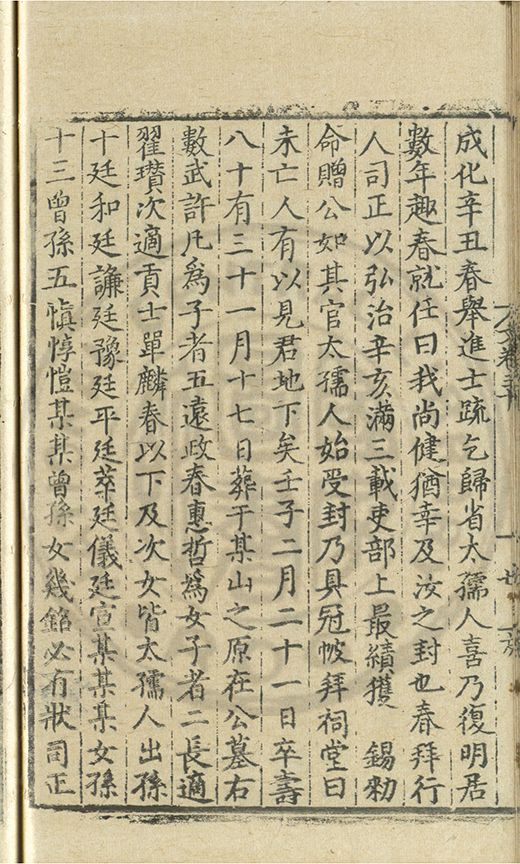 成化辛丑春舉進士疏乞歸省太孺人喜乃復明居
數年趣春就任曰我尚健猶幸及汝之封也春拜行
人司正以弘治辛亥滿三載吏部上最績獲 錫勑
命贈公如其官太孺人始受封乃具冠帔拜祠堂曰
未亡人有以見君地下矣壬子二月二十一日卒壽
八十有三十一月十七日葬于某山之原在公墓右
數武許凡爲子者五遠政春惠哲爲女子者二長適
翟瓚次適貢士單麟春以下及次女皆太孺人出孫
十廷和廷謙廷豫廷平廷萃廷儀廷宣某某某女孫
十三曾孫五愼惇愷某某曾孫女幾銘必有狀司正